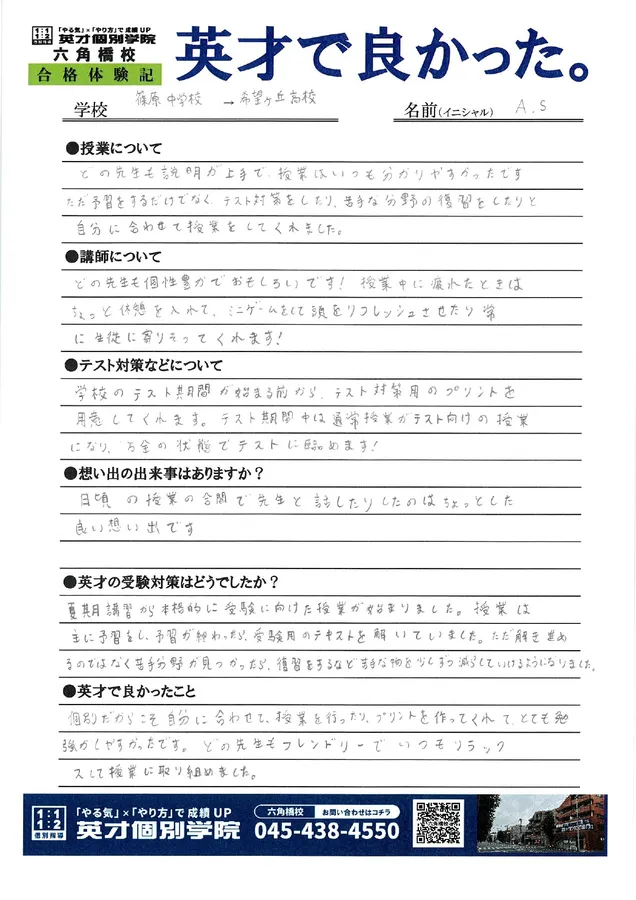 「やる気」×「やり方」で成績UP
1:1
1:2
個別指導
英才個別学院
六角橋校
合格体験記
英才で良かった。
学校 篠原中学校 → 希望ヶ丘高校
名前(イニシャル) A.S
●授業について
どの先生も説明が上手で、授業はいつも分かりやすかったです
ただ予習をするだけでなく、テスト対策をしたり、苦手な分野の復習をしたりと
自分に合わせて授業をしてくれました。
●講師について
どの先生も個性豊かでおもしろいです! 授業中に疲れたときは
ちょっと休憩を入れて、ミニゲームをして頭をリフレッシュさせたり常
に生徒に寄りそってくれます!
●テスト対策などについて
学校のテスト期間が始まる前から、テスト対策用のプリントを
用意してくれます。テスト期間中は通常授業がテスト向けの授業
になり、万全の状態でテストに臨めます!
●想い出の出来事はありますか?
日頃の授業の合間で先生と話したりしたのはちょっとした
良い想い出です
●英才の受験対策はどうでしたか?
夏期講習から本格的に受験に向けた授業が始まりました。授業は
主に予習をし、予習が終わったら、受験用のテキストを解いていました。ただ解き進め
るのではなく苦手分野が見つかったら、復習をするなど苦手な物を少しずつ減らしていけるようになりました。
●英才で良かったこと
個別だからこそ自分に合わせて、授業を行ったり、プリントを作ってくれて、とても勉
強がしやすかったです。どの先生もフレンドリーでいつもリラック
スして授業に取り組めました。
1:1
1:2
個別指導
「やる気」×「やり方」で成績UP
英才個別学院
六角橋校 お問い合わせはコチラ
045-438-4550